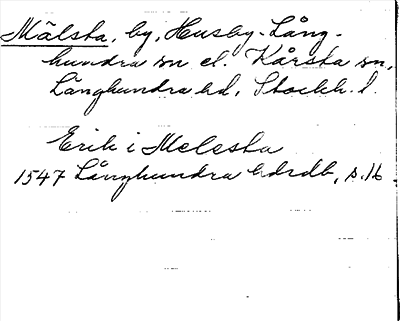 Mälsta, by, Husby-Lång-
hundra sn el. Kårsta sn,
Långhundra hd, Stockh. l.
Erik i Melesta
1547 Långhundra hdrdb, s. 16